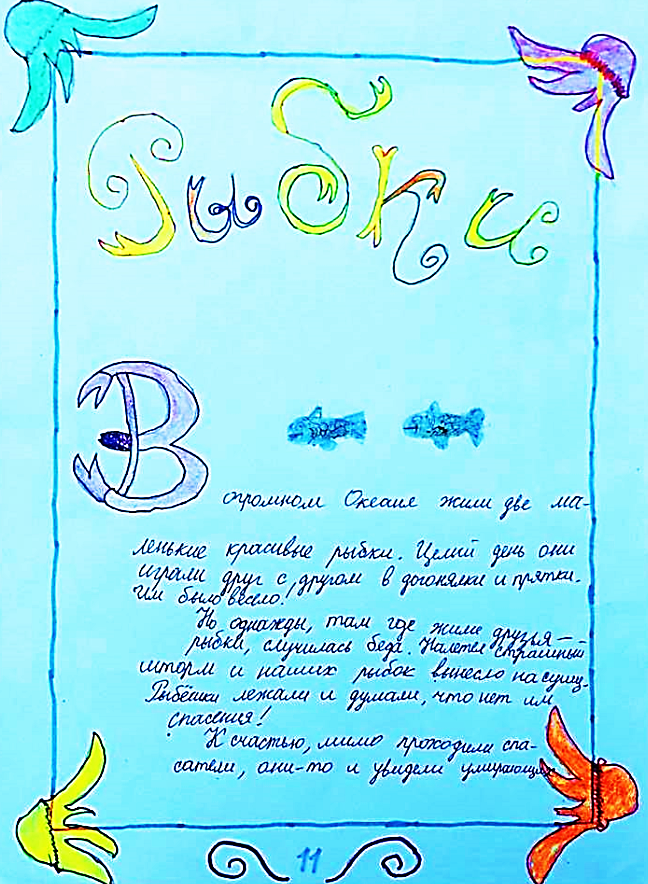 Рыбки
В огромном Океане жили две ма-
ленькие красивые рыбки. Целый день они
играли друг с другом в догонялки и прятки.
Им было весело!
Но однажды, там где жили друзья-
рыбки, случилась беда. Налетел страшный
шторм и наших рыбок вынесло на сушу.
Рыбёшки лежали и думали, что нет им
спасения!
К счастью, мимо проходили спа-
сатели, они-то и увидели умирающих
11